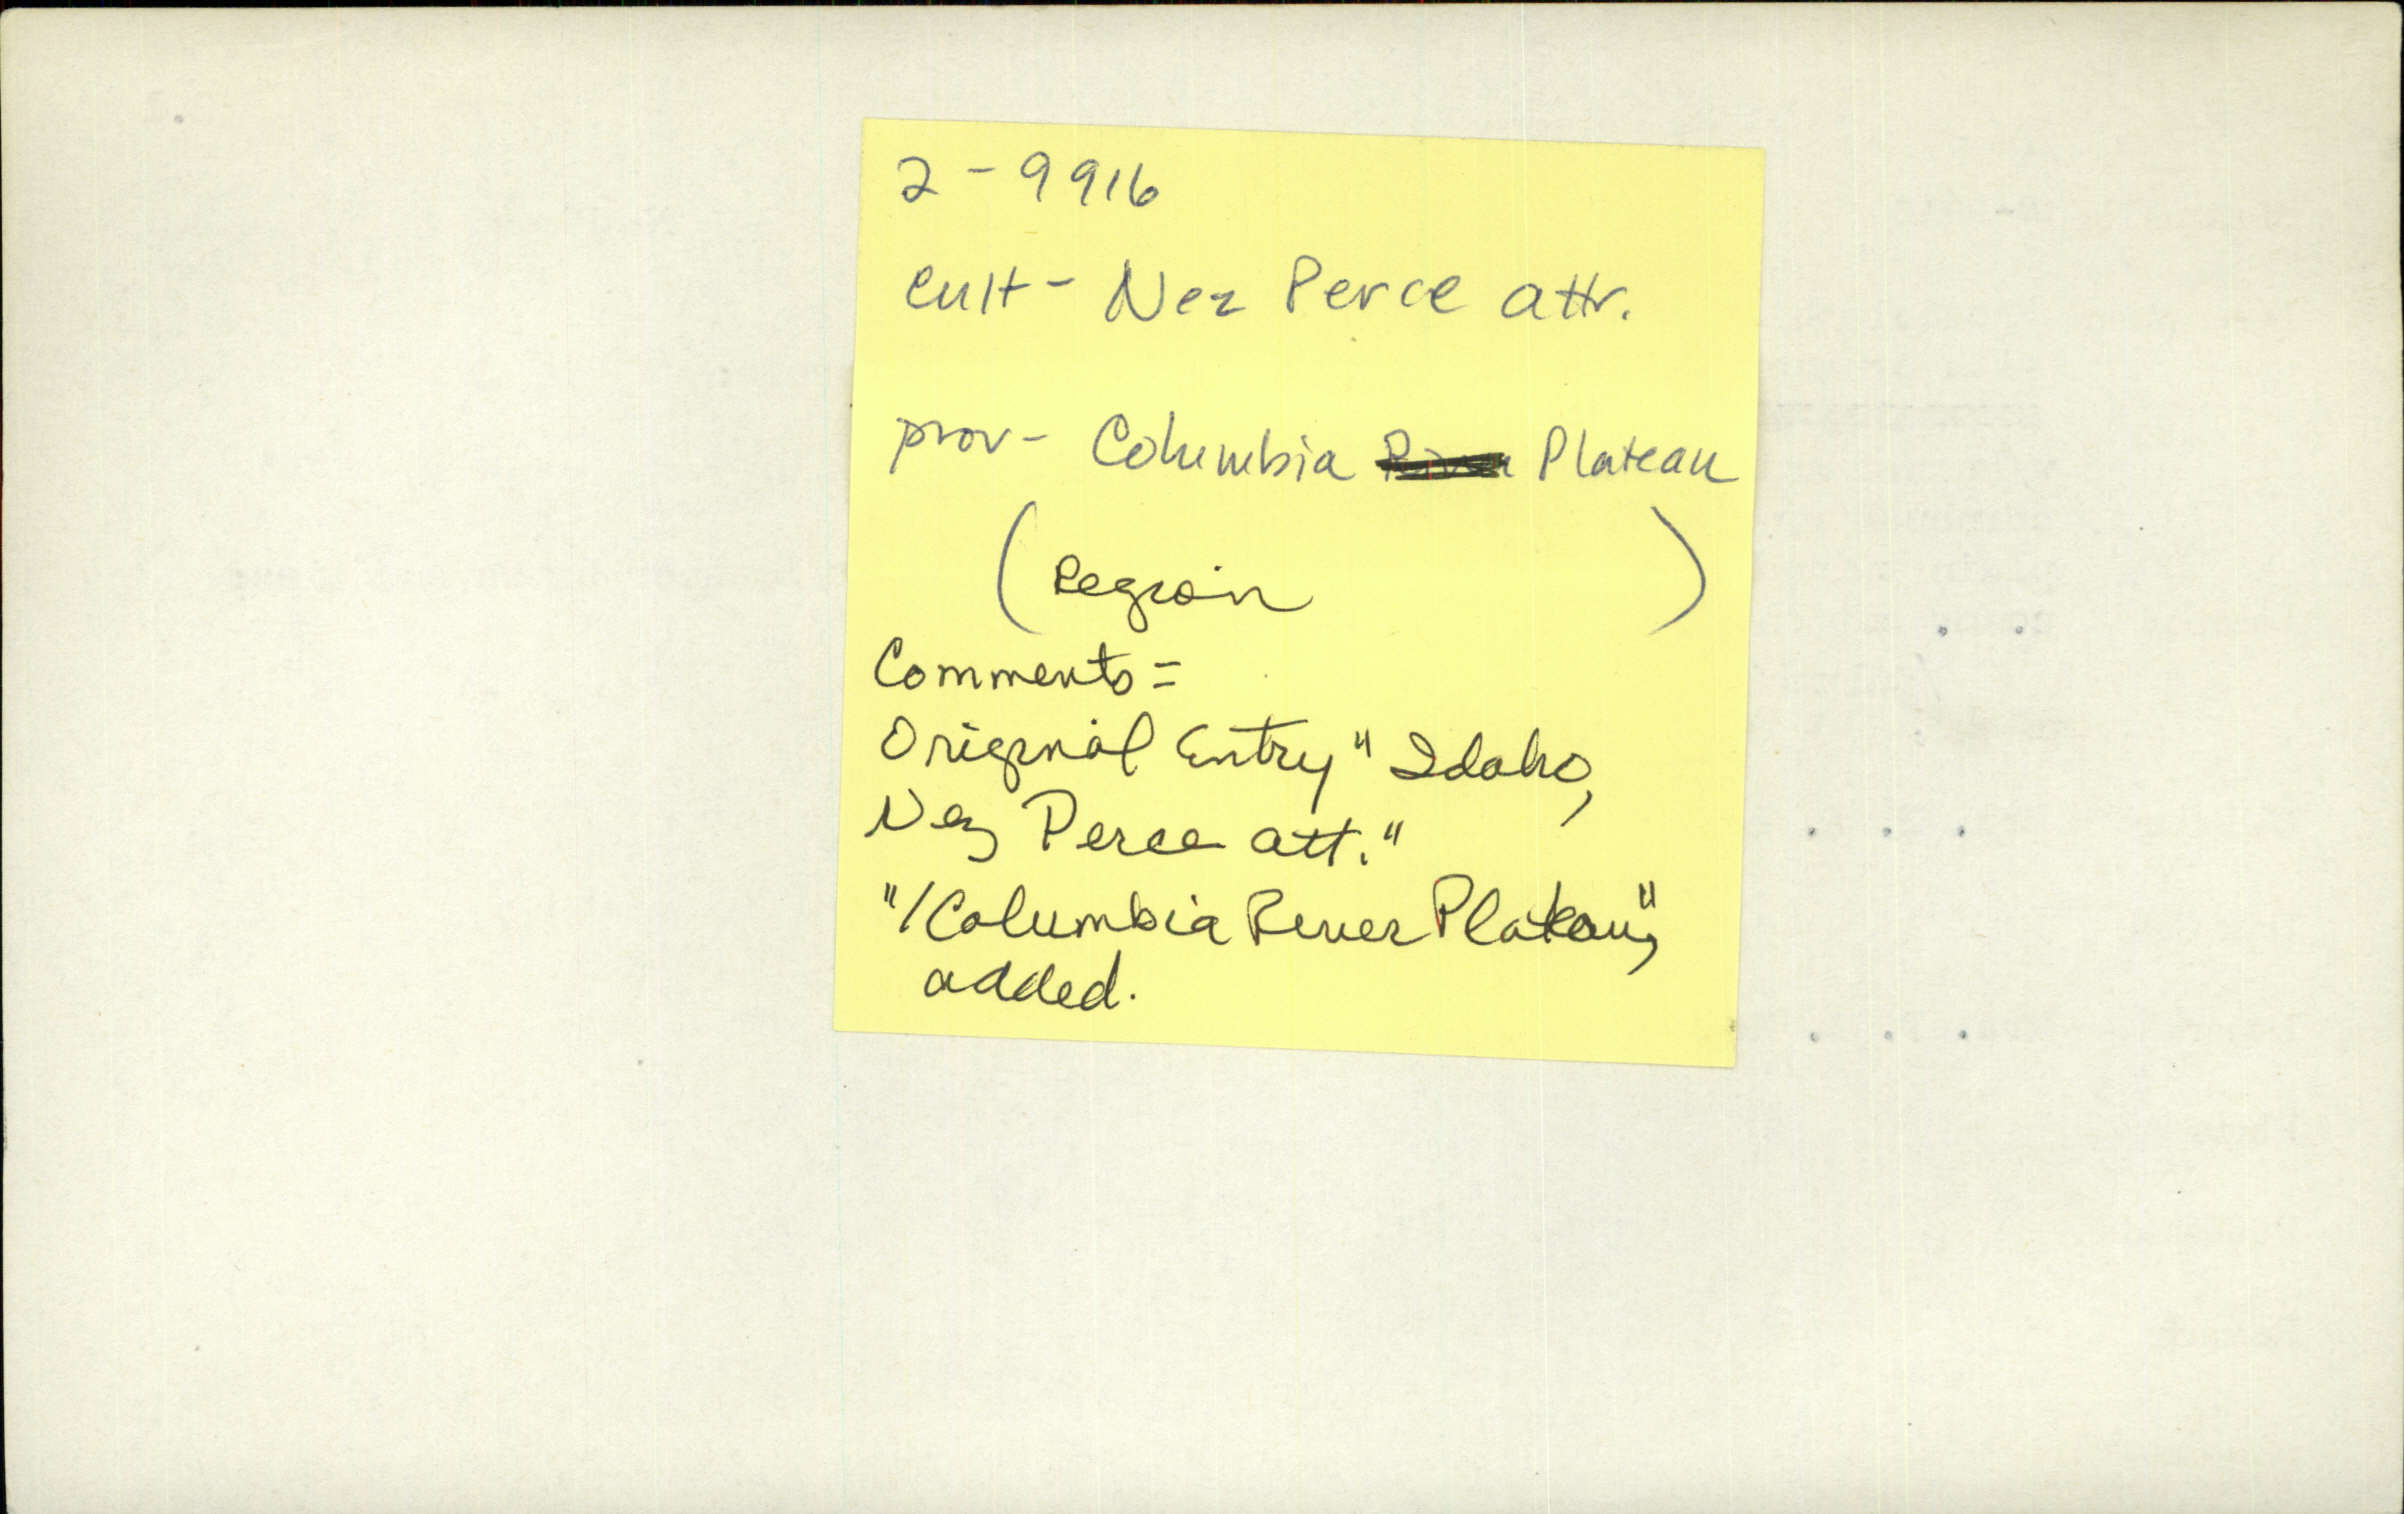 2-9916
cult- Nez Perce attr.
prov- Columbia River Plateau
(Region )
Comments=
Original Entry "Idaho,
Nez Perce att."
"/Columbia River Plateau",
added.